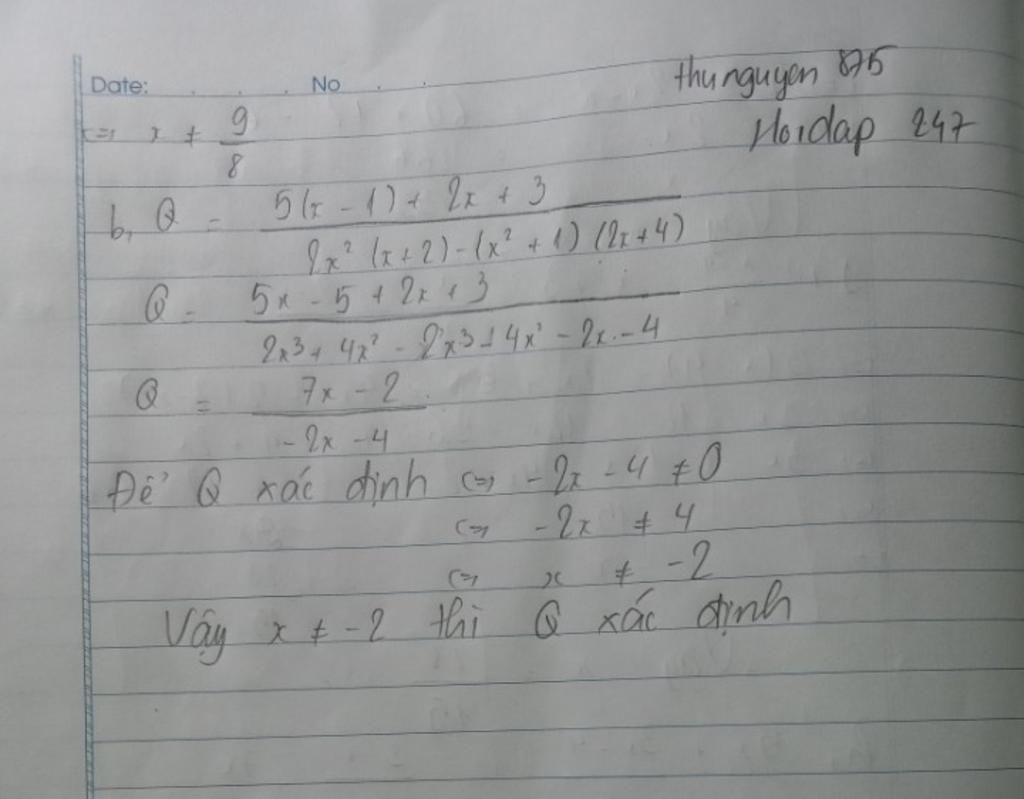 Date: . . . No . .
thunguyen 875
Hoidap 247
<=> x ≠ 9/8
b, Q = (5(x - 1) + 2x + 3)/(2x² (x + 2) - (x² + 1) (2x + 4))
Q = (5x - 5 + 2x + 3)/(2x³ + 4x² - 2x³ - 4x² - 2x - 4)
Q = (7x - 2)/(-2x - 4)
Để Q xác định <=> -2x - 4 ≠ 0
<=> -2x ≠ 4
<=> x ≠ -2
Vậy x ≠ -2 thì Q xác định